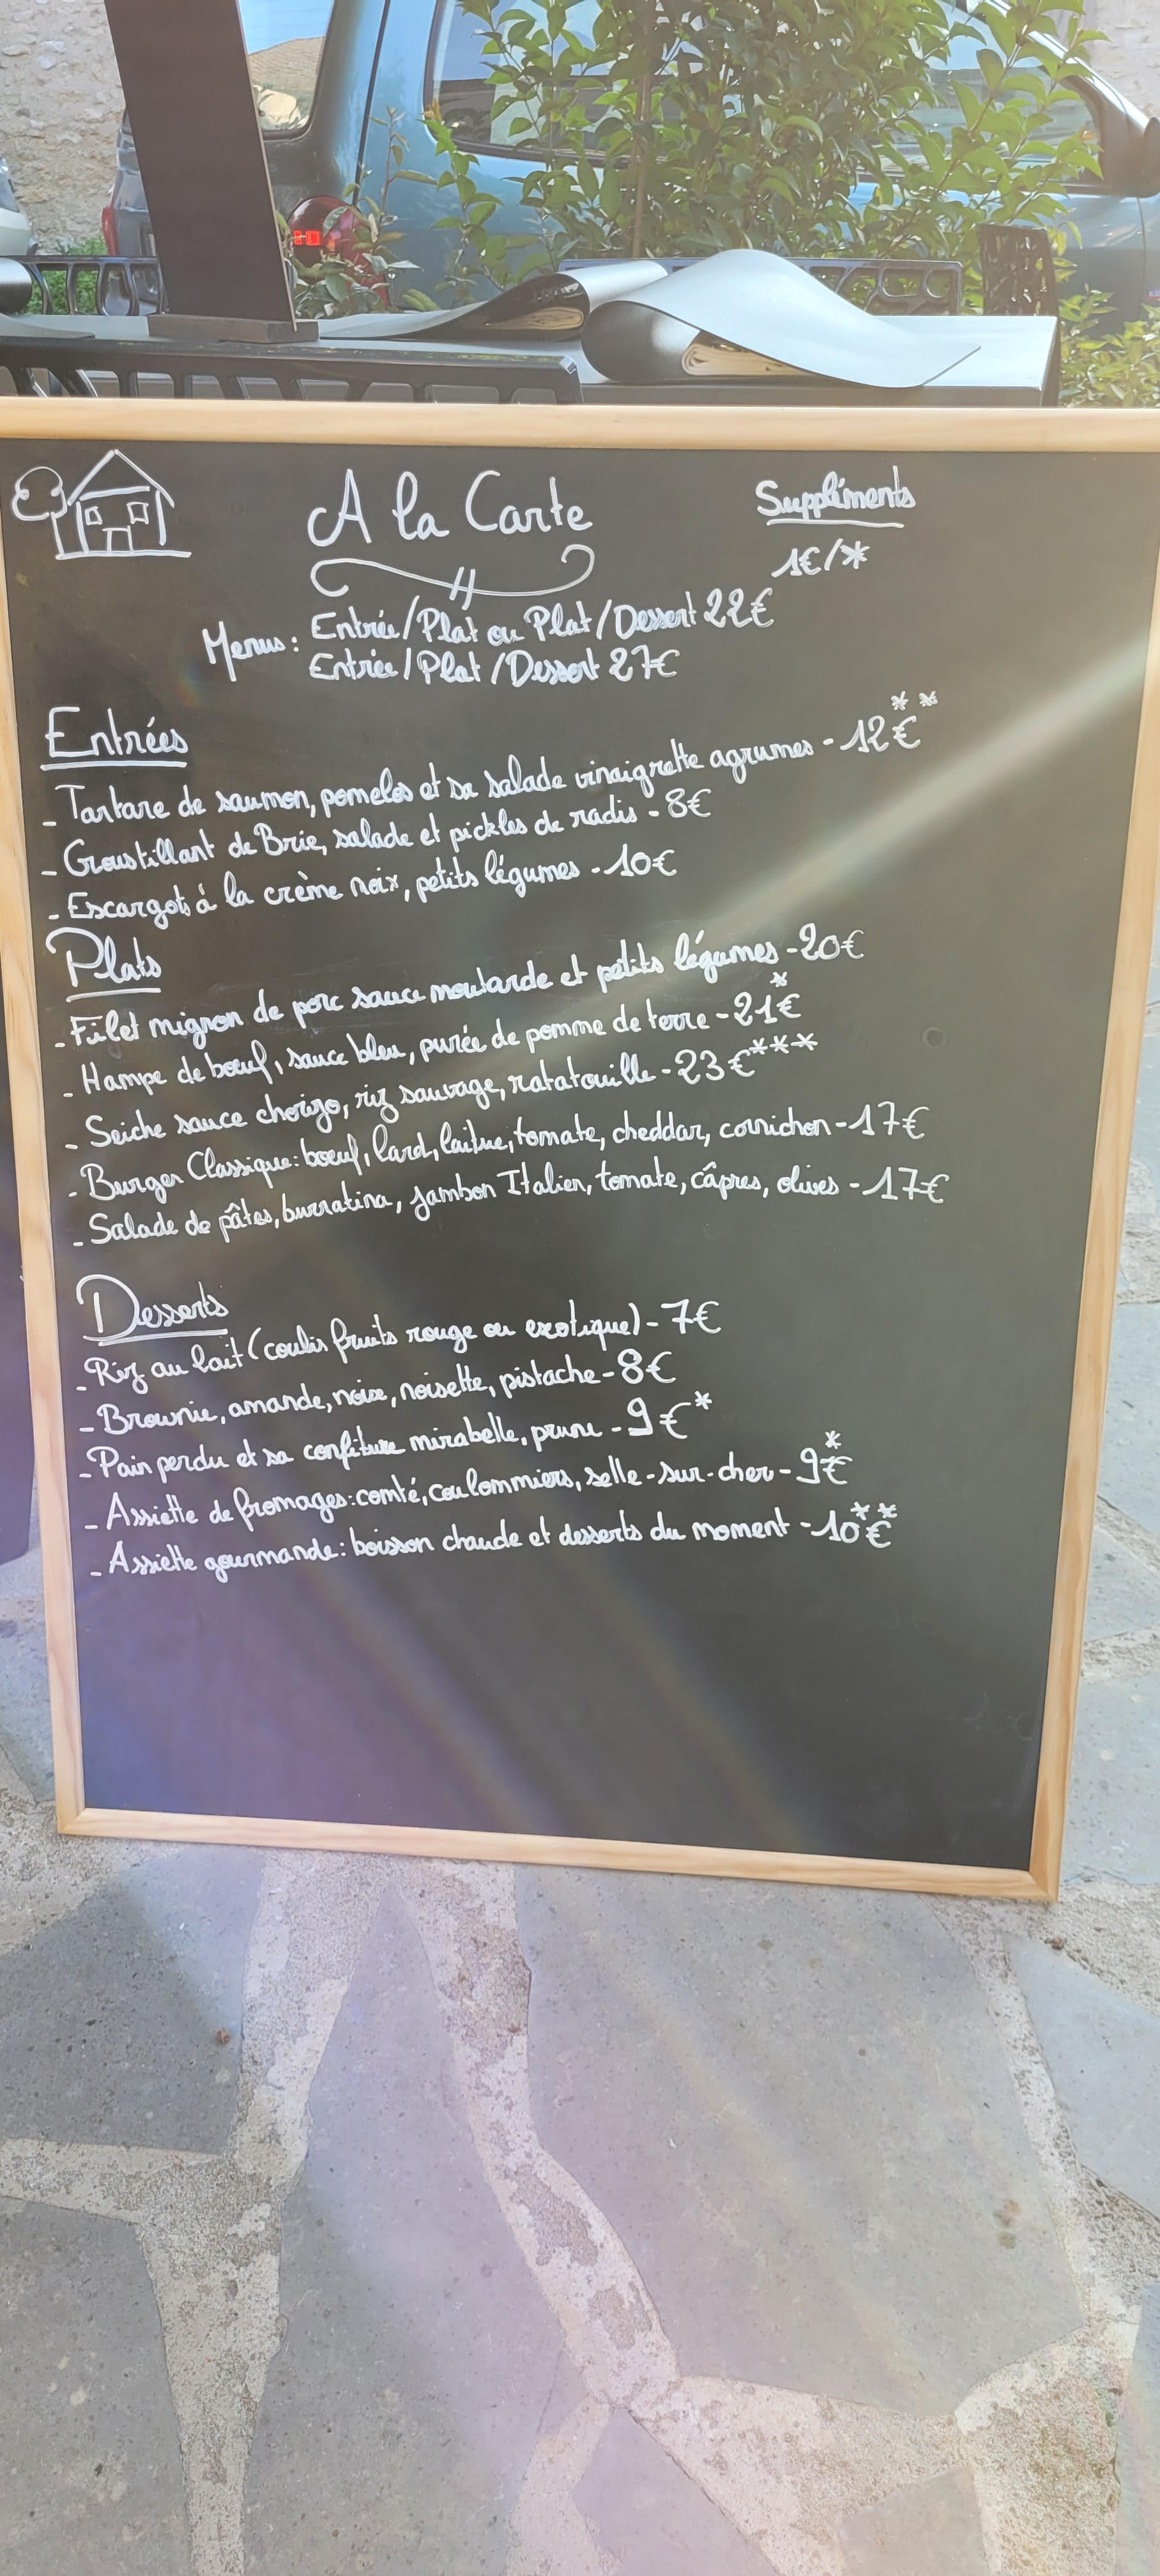 A la Carte
Suppléments
1€/*
Menus : Entrée/Plat ou Plat/Dessert 22€
Entrée/Plat/Dessert 27€
Entrées
- Tartare de saumon, pomelos et sa salade vinaigrette agrumes - 12€**
- Croustillant de Brie, salade et pickles de radis - 8€
- Escargots à la crème noix, petits légumes - 10€
Plats
- Filet mignon de porc sauce moutarde et petits légumes - 20€
- Hampe de bœuf, sauce bleu, purée de pomme de terre - 21€*
- Seiche sauce chorizo, riz sauvage, ratatouille - 23€***
- Burger Classique : bœuf, lard, laitue, tomate, cheddar, cornichon - 17€
- Salade de pâtes, burratina, jambon Italien, tomate, câpres, olives - 17€
Desserts
- Riz au lait (coulis fruits rouge ou exotique) - 7€
- Brownie, amande, noix, noisette, pistache - 8€
- Pain perdu et sa confiture mirabelle, prune - 9€*
- Assiette de fromages : comté, coulommiers, selle-sur-cher - 9€*
- Assiette gourmande : boisson chaude et desserts du moment - 10€**